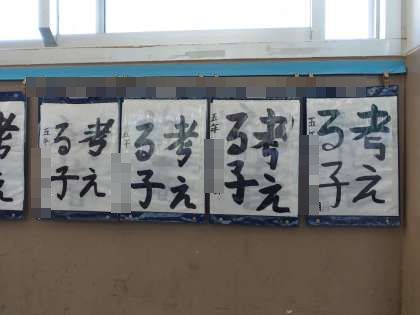 考え
る子
五年
考え
る子
五年
考え
る子
五年
考え
る子
五年
考え